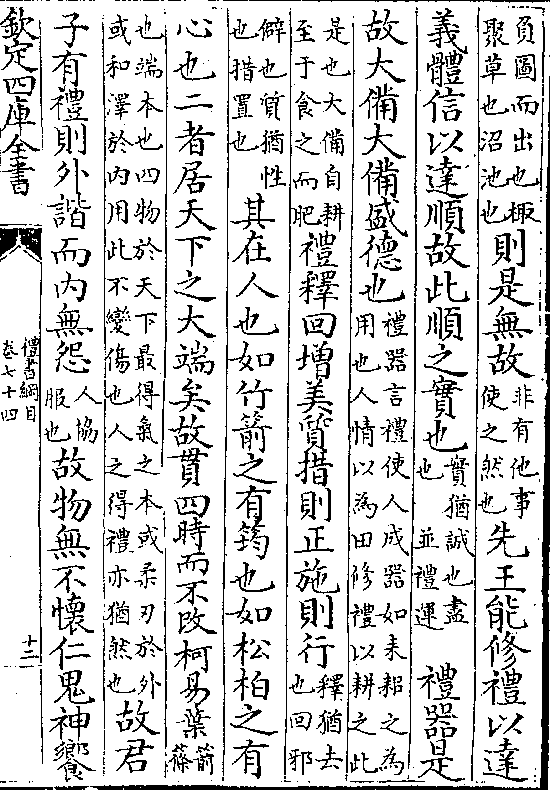 負圖而出也棷聚草也沼池也則是無故非有他事使之然也先王能修禮以達
義體信以達順故此順之實也實猶誠也盡也並禮運禮器是
故大備大備盛德也禮器言禮使人成器如耒耜之為用也人情以為田修禮以耕之此
是也大備自耕至于食之而肥禮釋回增美質措則正施則行釋猶去也回邪
僻也質猶性也措置也其在人也如竹箭之有筠也如松柏之有
心也二者居天下之大端矣故貫四時而不改柯易葉箭篠
也端本也四物於天下最得氣之本或柔刃於外或和澤於內用此不變傷也人之得禮亦猶然也故君
子有禮則外諧而內無怨人協服也故物無不懷仁鬼神饗
欽定四庫全書
禮書綱目
卷七十四
十二